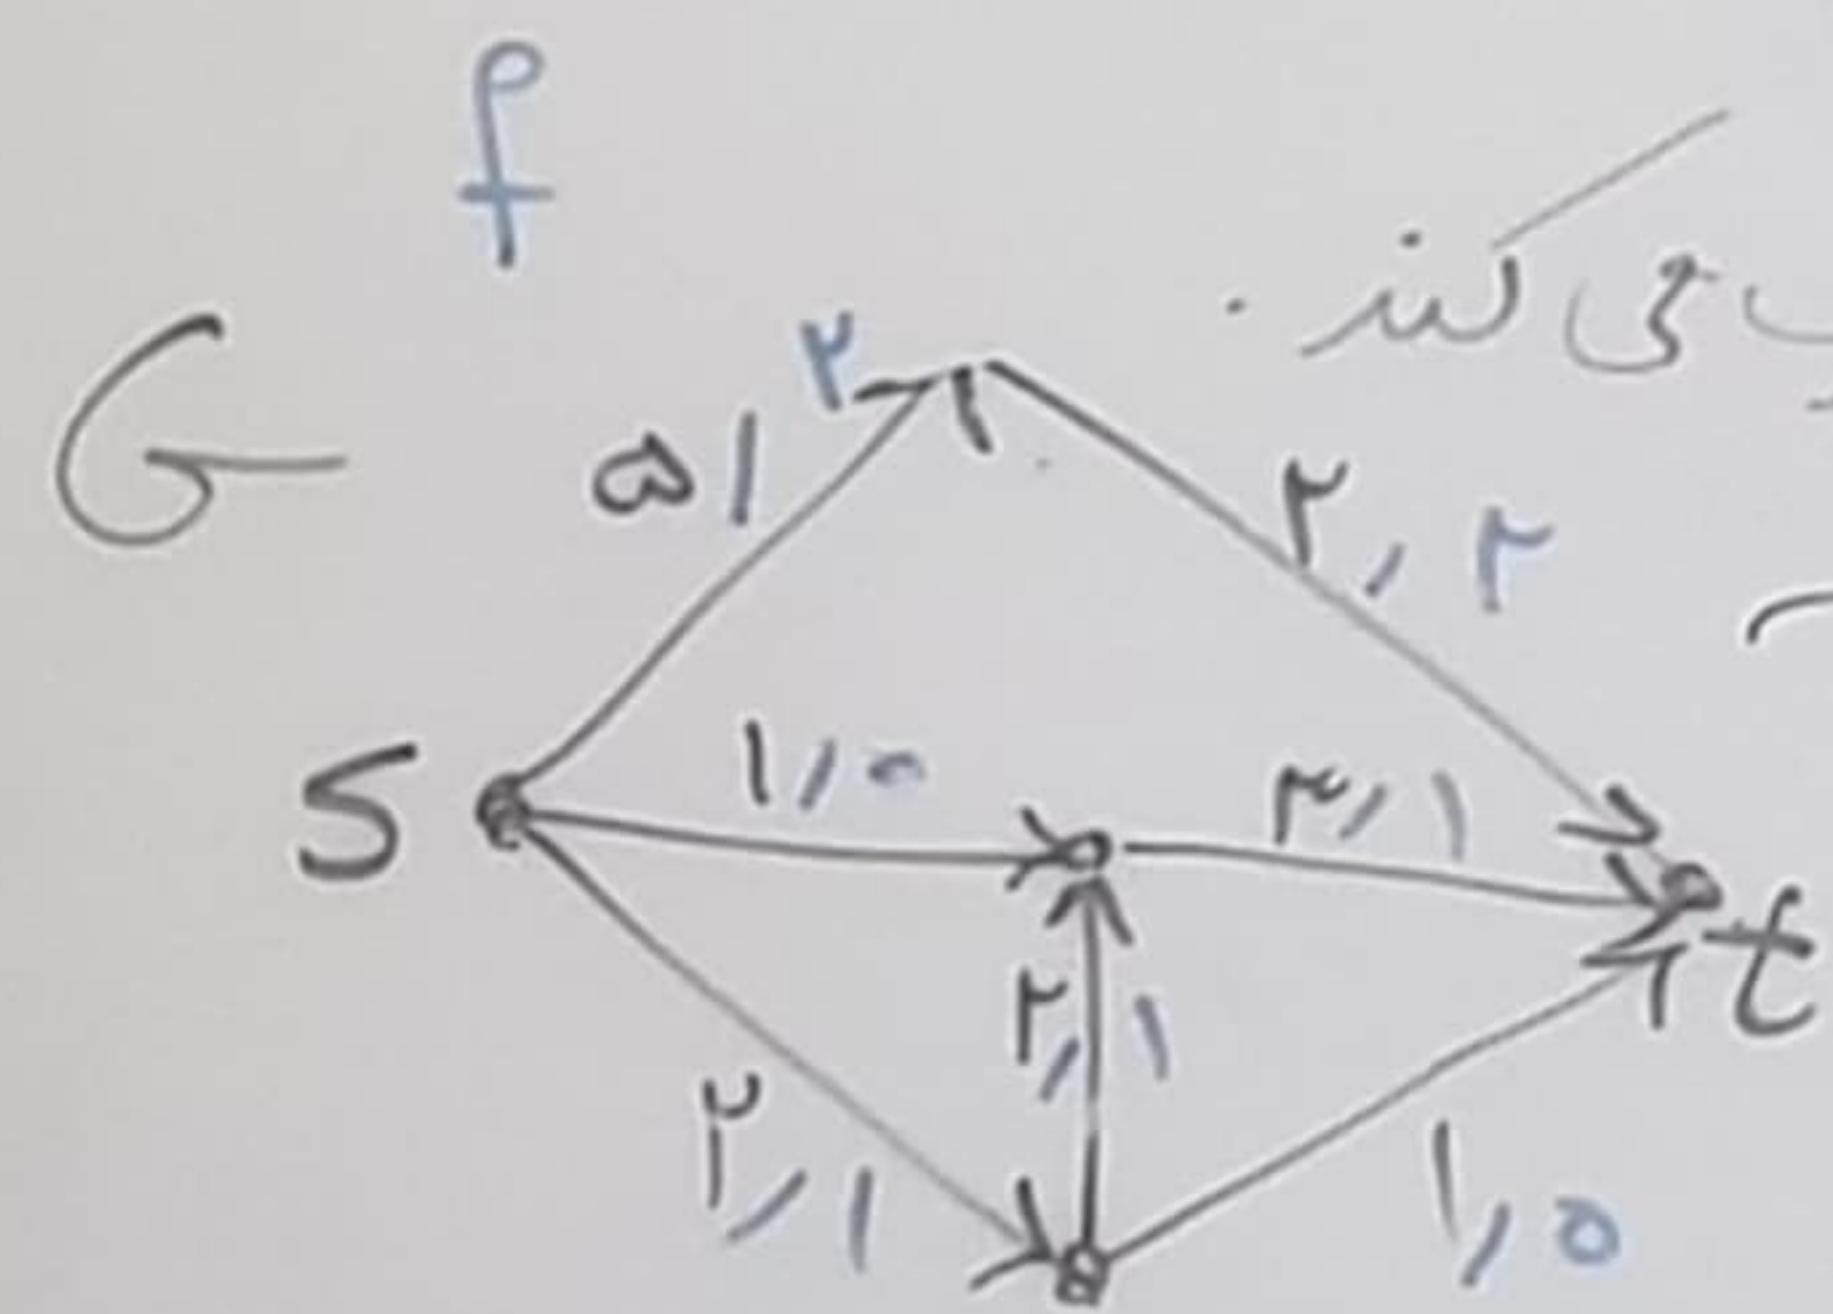 f
G
می کند.
۵, ۲
۲, ۲
S
۱, ۰
۳, ۱
t
۲, ۱
۲, ۱
۱, ۰